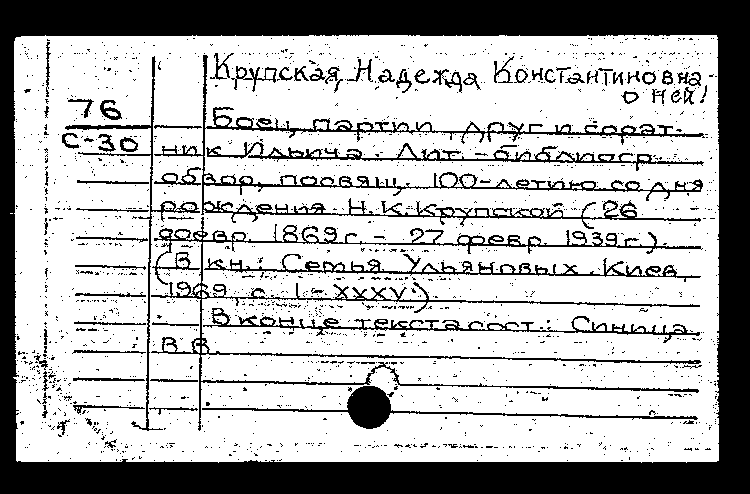 Крупская, Надежда Константиновна -
о ней!
76
С-30
Боец партии, друг и сорат-
ник Ильича. Лит.-библиогр.
обзор, посвящ. 100-летию со дня
рождения Н.К.Крупской (26
февр. 1869г. - 27 февр. 1939г.).
(В кн.: Семья Ульяновых. Киев,
1969, с. I - XXXV.)
В конце текста сост.: Синица
В.В.